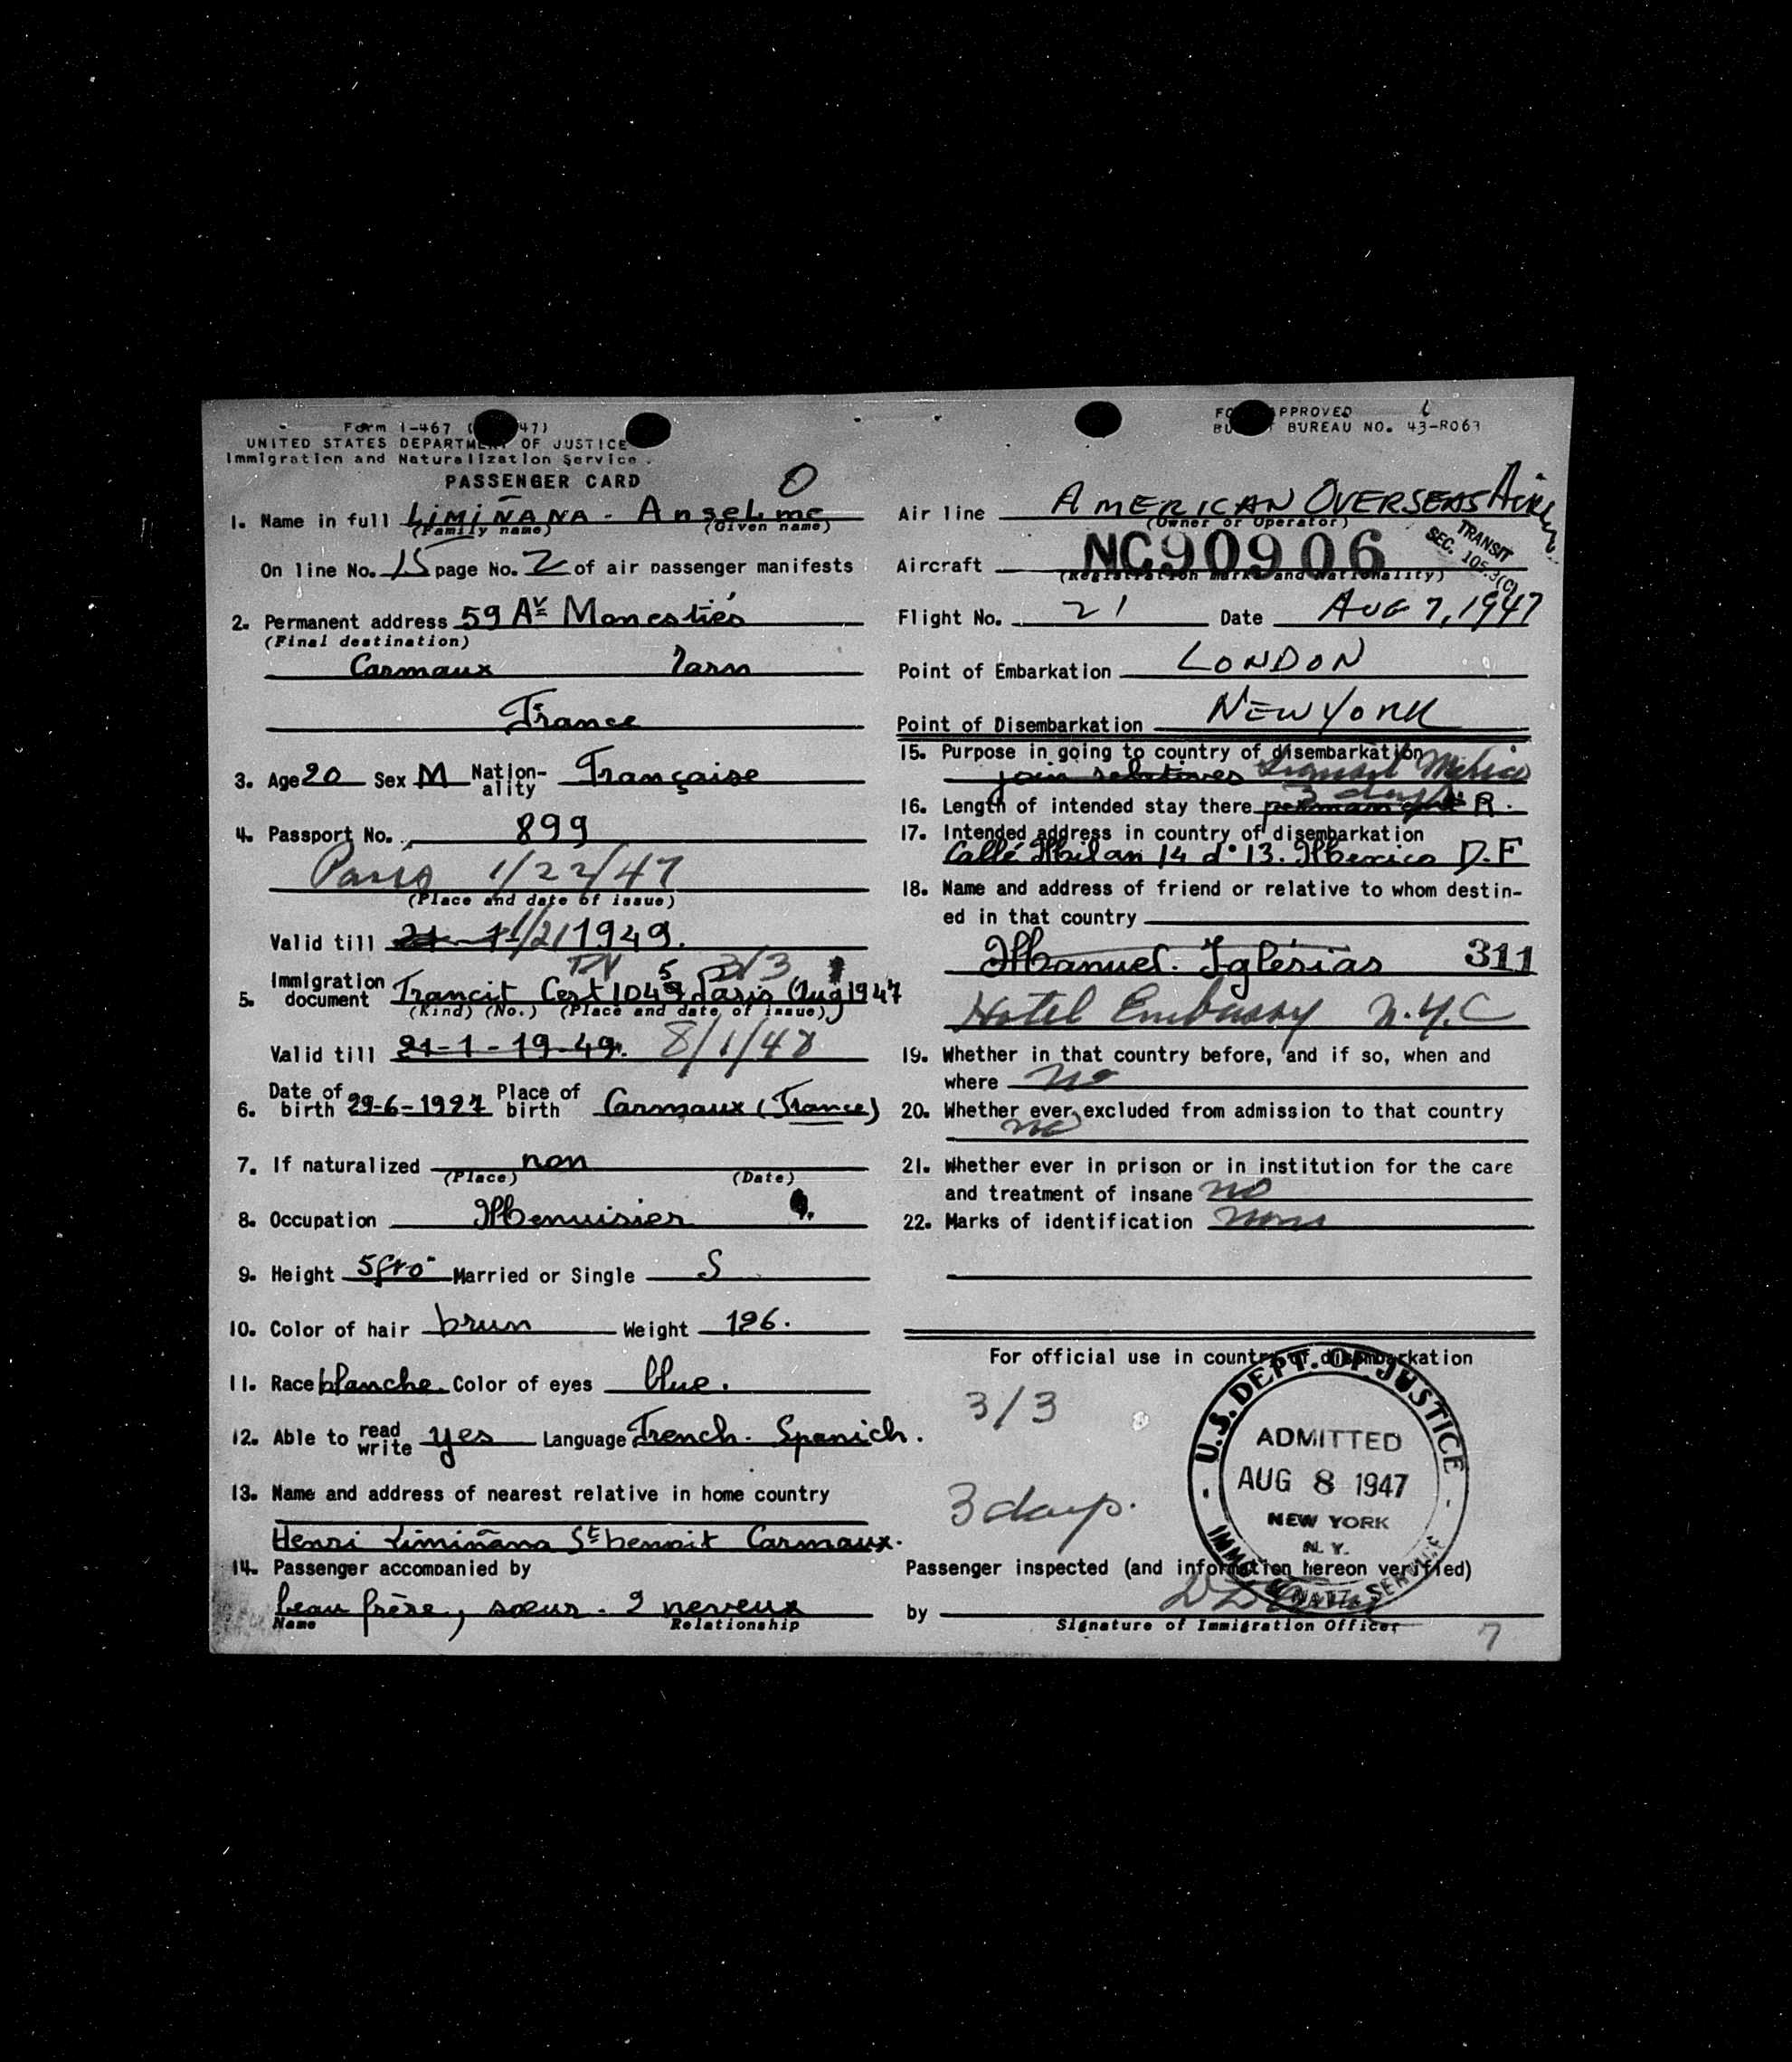 Form I-467 ( 47)
UNITED STATES DEPARTMENT OF JUSTICE
Immigration and Naturalization Service.
PASSENGER CARD
O
1. Name in full LIMIÑANA - Anselme
(Family name) (Given name)
On line No. 15 page No. 2 of air passenger manifests
2. Permanent address 59 Av Monestiés
(Final destination)
Carmaux Tarn
France
3. Age 20 Sex M Nation-ality Française
4. Passport No. 899
Paris 1/22/47
(Place and date of issue)
Valid till 1/21 1949.
5. Immigration document Trancit Cert 1045 Paris Aug 1947
3/3
(Kind) (No.) (Place and date of issue)
Valid till 21-1-19-49. 8/1/48
6. Date of birth 29-6-1927 Place of birth Carmaux (France)
7. If naturalized non
(Place) (Date)
8. Occupation Menuisier
9. Height 5ft0 Married or Single S
10. Color of hair brun Weight 126.
11. Race blanche. Color of eyes blue.
12. Able to read write yes Language French. Spanich.
13. Name and address of nearest relative in home country
Henri Limiñana St benoit Carmaux.
14. Passenger accompanied by
beau frère, sœur. 2 neveux
Name Relationship
FO PPROVED
BU BUREAU NO. 43-R063
Air line AMERICAN OVERSEAS Airlines
(Owner or Operator)
TRANSIT
SEC. 105.3(C)
Aircraft NC90906
(Registration marks and nationality)
Flight No. 21 Date AUG 7, 1947
Point of Embarkation LONDON
Point of Disembarkation NEW YORK
15. Purpose in going to country of disembarkation
join relatives transit Mexico
16. Length of intended stay there permanent 3 days R.
17. Intended address in country of disembarkation
Callé Milan 14 d° 13. Mexico D.F
18. Name and address of friend or relative to whom destin-
ed in that country
Manuel. Iglésias 311
Hotel Embassy N.Y.C
19. Whether in that country before, and if so, when and
where no
20. Whether ever excluded from admission to that country
no
21. Whether ever in prison or in institution for the care
and treatment of insane no
22. Marks of identification none
For official use in country of disembarkation
3/3
3 days.
U.S. DEPT. OF JUSTICE
ADMITTED
AUG 8 1947
NEW YORK
N. Y.
IMMIG. & NATZ. SERVICE
Passenger inspected (and information hereon verified)
by
Signature of Immigration Officer
7